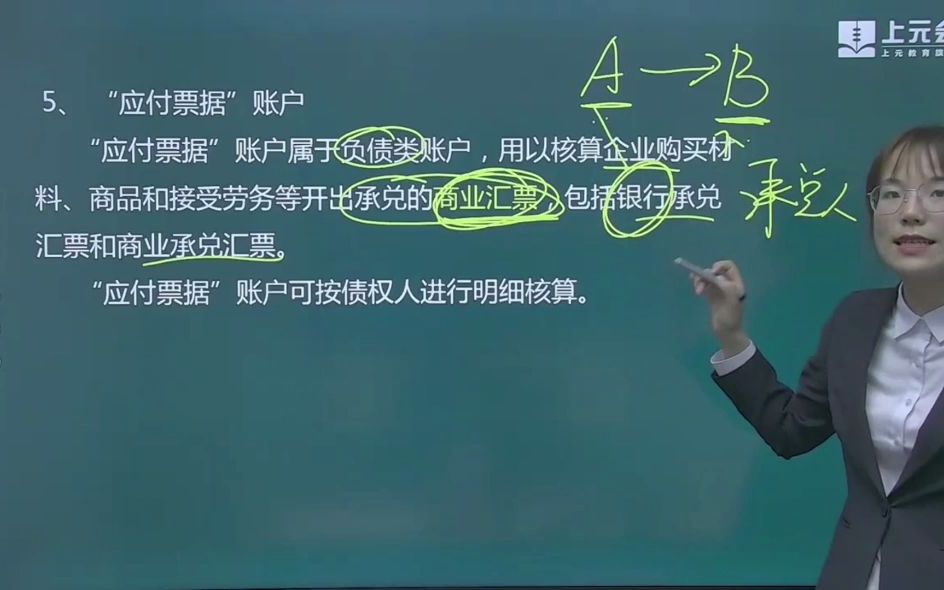 上元会
上元教育旗
A → B
5、 “应付票据”账户
“应付票据”账户属于负债类账户，用以核算企业购买材
料、商品和接受劳务等开出承兑的商业汇票，包括银行承兑
承兑人
汇票和商业承兑汇票。
“应付票据”账户可按债权人进行明细核算。